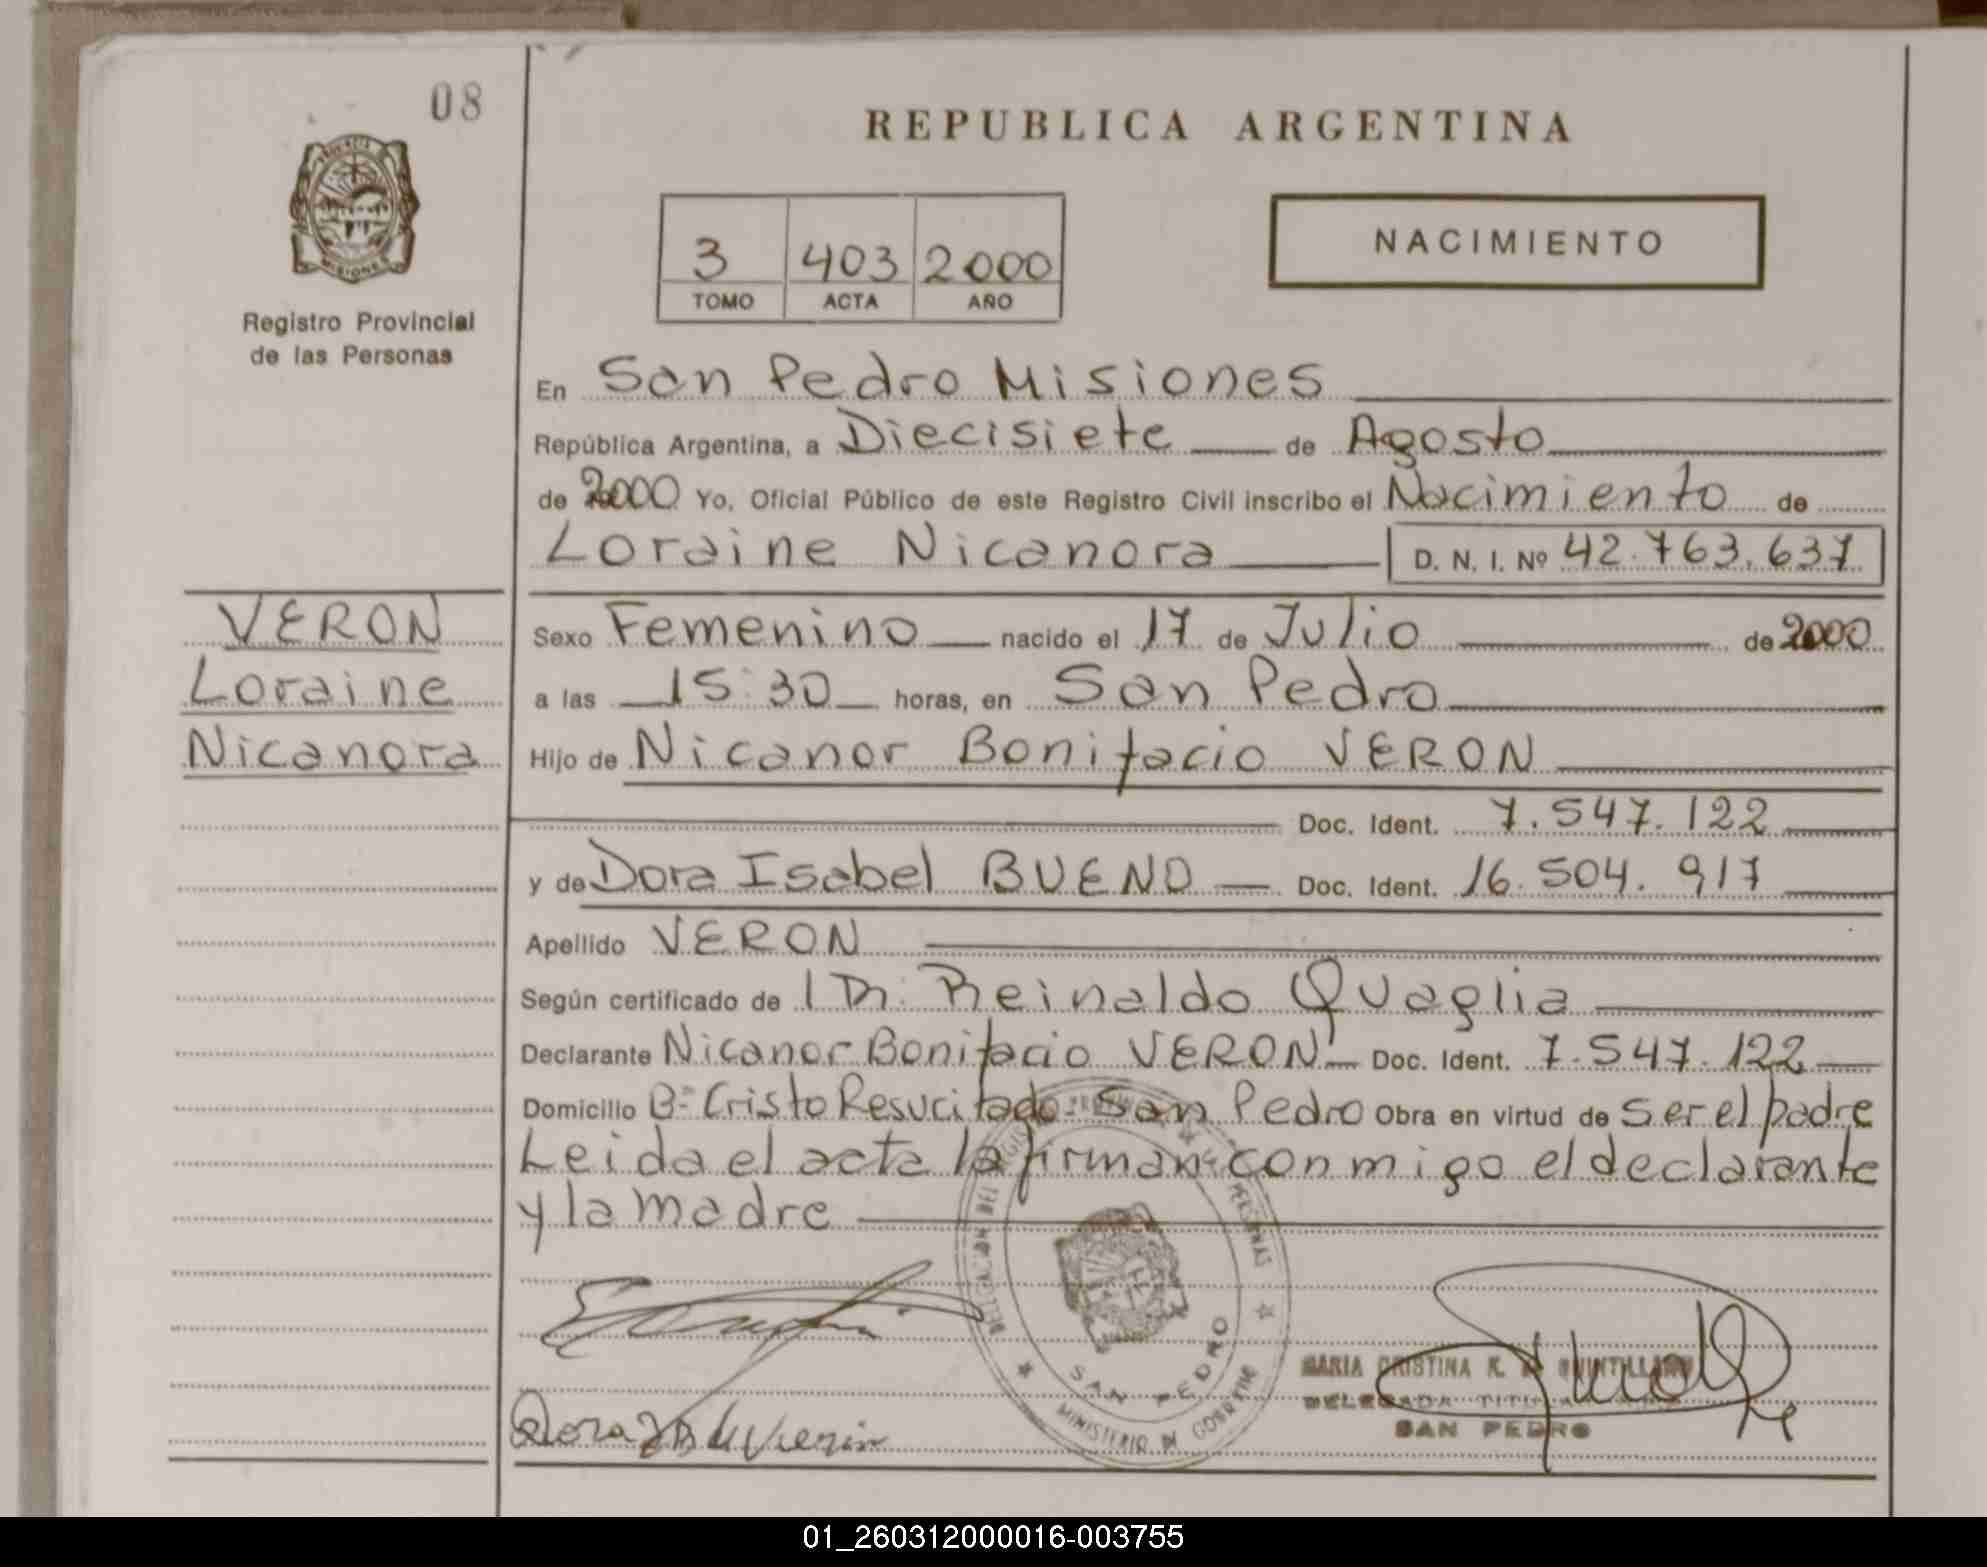 08
REPUBLICA ARGENTINA
MISIONES
Registro Provincial
de las Personas
3 403 2000
TOMO ACTA AÑO
NACIMIENTO
En San Pedro Misiones
República Argentina, a Diecisiete de Agosto
de 2000 Yo, Oficial Público de este Registro Civil inscribo el Nacimiento de
Loraine Nicanora D. N. I. Nº 42.763.637
VERON
Loraine
Nicanora
Sexo Femenino nacido el 17 de Julio de 2000
a las 15:30 horas, en San Pedro
Hijo de Nicanor Bonifacio VERON
Doc. Ident. 7.547.122
y de Dora Isabel BUENO Doc. Ident. 16.504.917
Apellido VERON
Según certificado de Dr. Reinaldo Quaglia
Declarante Nicanor Bonifacio VERON Doc. Ident. 7.547.122
Domicilio Bº Cristo Resucitado - San Pedro Obra en virtud de ser el padre
Leida el acta la firman conmigo el declarante
y la madre
DELEGACION DEL REGISTRO PROVINCIAL DE LAS PERSONAS
SAN PEDRO
MINISTERIO DE GOBIERNO
MARIA CRISTINA K. DE
DELEGADA TITULAR
SAN PEDRO
01_260312000016-003755